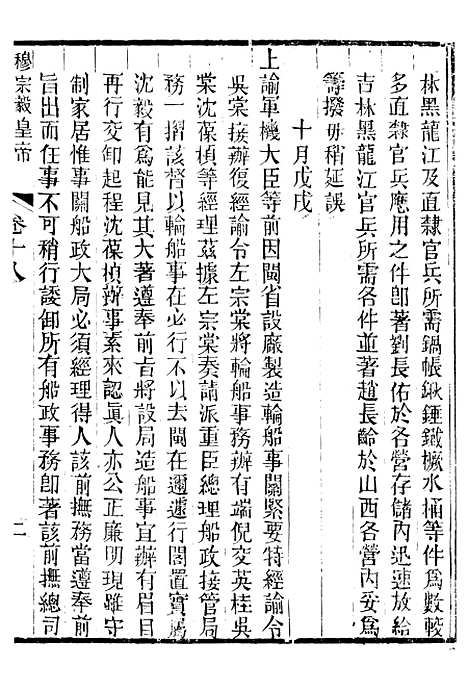 林黑龍江及直隸官兵所需鍋帳鍬鍾鐵橛水桶等件爲數較
多直隸官兵應用之件卽著劉長佑於各營存儲內迅速放給
吉林黑龍江官兵所需各件並著趙長齡於山西各營內妥爲
籌撥毋稍延誤
十月戊戌
上諭軍機大臣等前因閩省設廠製造輪船事關緊要特經諭令
吳棠接辦復經諭令左宗棠將輪船事務辦有端倪交英桂吳
棠沈葆楨等經理茲據左宗棠奏請派重臣總理船政接管局
務一摺該督以輪船事在必行不以去閩在邇遽行閣置實屬
沈毅有爲能見其大著遵奉前旨將設局造船事宜辦有眉目
再行交卸起程沈葆楨辦事素來認眞人亦公正廉明現雖守
制家居惟事關船政大局必須經理得人該前撫務當遵奉前
旨出而任事不可稍行諉卸所有船政事務卽著該前撫總司
穆宗毅皇帝
卷十八
二